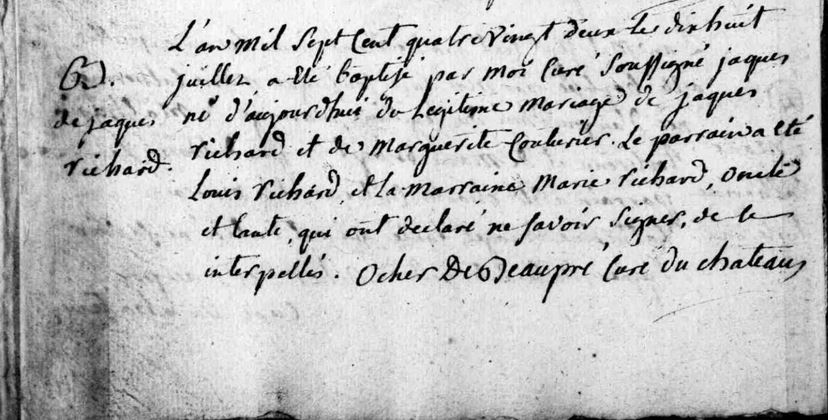 L'an mil Sept Cent quatre Vingt deux le dixhuit
B. juillet a eté baptisé par moi Curé Soussigné jaques
de jaques né d'aujourdhui du Legitime mariage de jaques
richard. richard et de Marguerite Couturier. Le parrain a eté
Louis richard, et la marraine Marie richard, oncle
et tante, qui ont declaré ne savoir Signer, de ce
interpellés. Ocher De Beaupré Curé du chateau